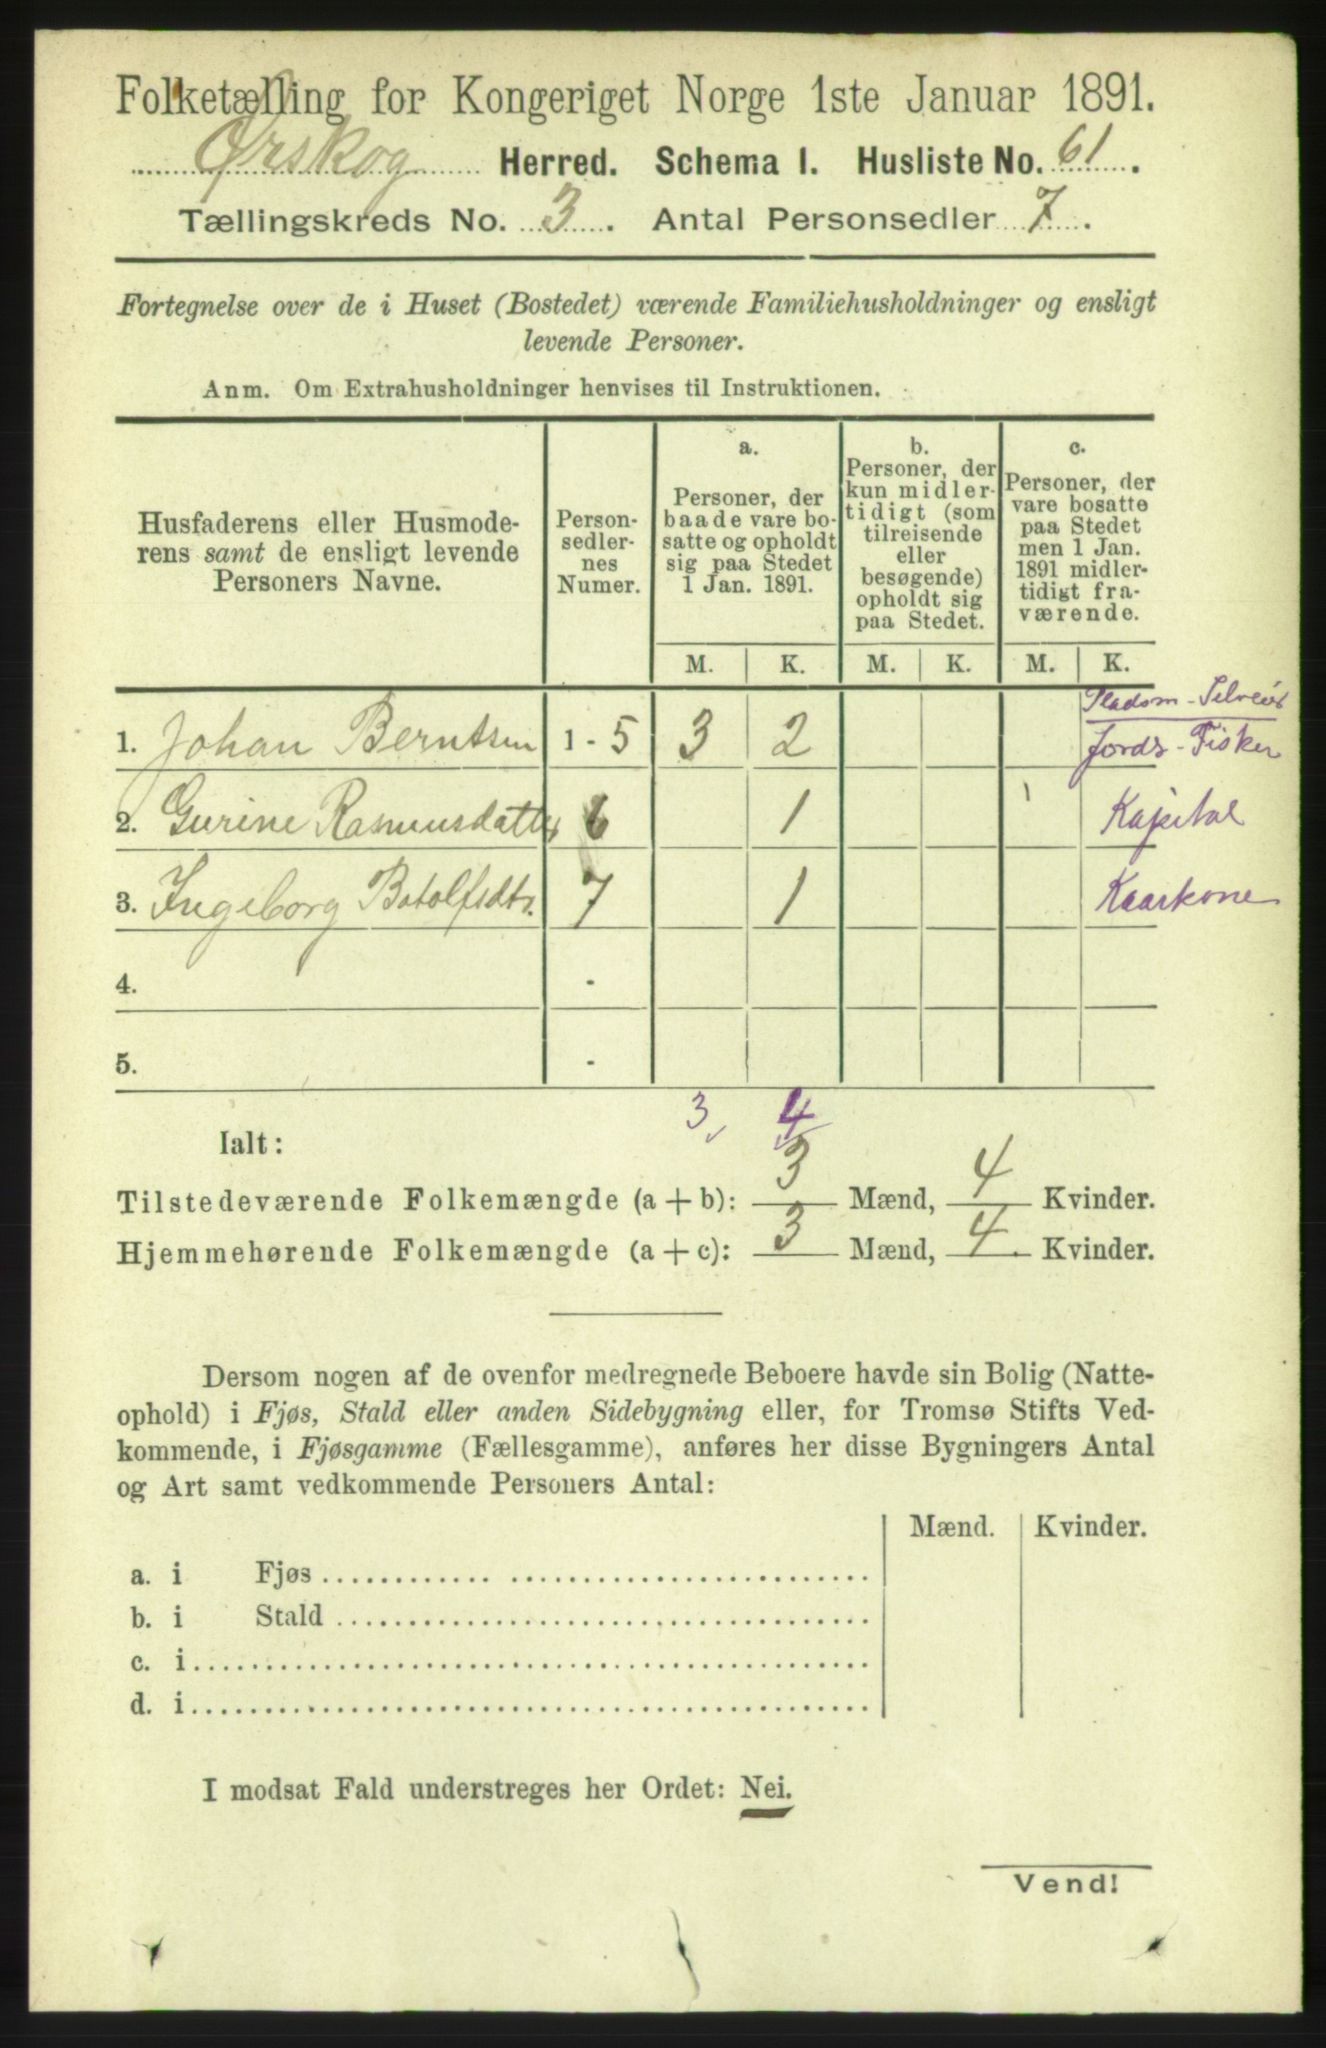 Folketælling for Kongeriget Norge 1ste Januar 1891.
Ørskog Herred. Schema I. Husliste No. 61.
Tællingskreds No. 3. Antal Personsedler 7.
Fortegnelse over de i Huset (Bostedet) værende Familiehusholdninger og ensligt
levende Personer.
Anm. Om Extrahusholdninger henvises til Instruktionen.
Husfaderens eller Husmode-
rens samt de ensligt levende
Personers Navne.
Person-
sedler-
nes
Numer.
a.
Personer, der
baade vare bo-
satte og opholdt
sig paa Stedet
1 Jan. 1891.
b.
Personer, der
kun midler-
tidigt (som
tilreisende
eller
besøgende)
opholdt sig
paa Stedet.
c.
Personer, der
vare bosatte
paa Stedet
men 1 Jan.
1891 midler-
tidigt fra-
værende.
M. K. M. K. M. K.
Pladsm - Selveier
1. Johan Berntsen 1 - 5 3 2 Jordb - Fisker
2. Gurine Rasmusdatter 6 1 Kapital
3. Ingeborg Botolfsdtr. 7 1 Kaarkone
4. -
5. -
3 4
Ialt:
Tilstedeværende Folkemængde (a + b): 3 Mænd, 4 Kvinder.
Hjemmehørende Folkemængde (a + c): 3 Mænd, 4. Kvinder.
Dersom nogen af de ovenfor medregnede Beboere havde sin Bolig (Natte-
ophold) i Fjøs, Stald eller anden Sidebygning eller, for Tromsø Stifts Ved-
kommende, i Fjøsgamme (Fællesgamme), anføres her disse Bygningers Antal
og Art samt vedkommende Personers Antal:
Mænd. Kvinder.
a. i Fjøs
b. i Stald
c. i
d. i
I modsat Fald understreges her Ordet: Nei.
Vend!